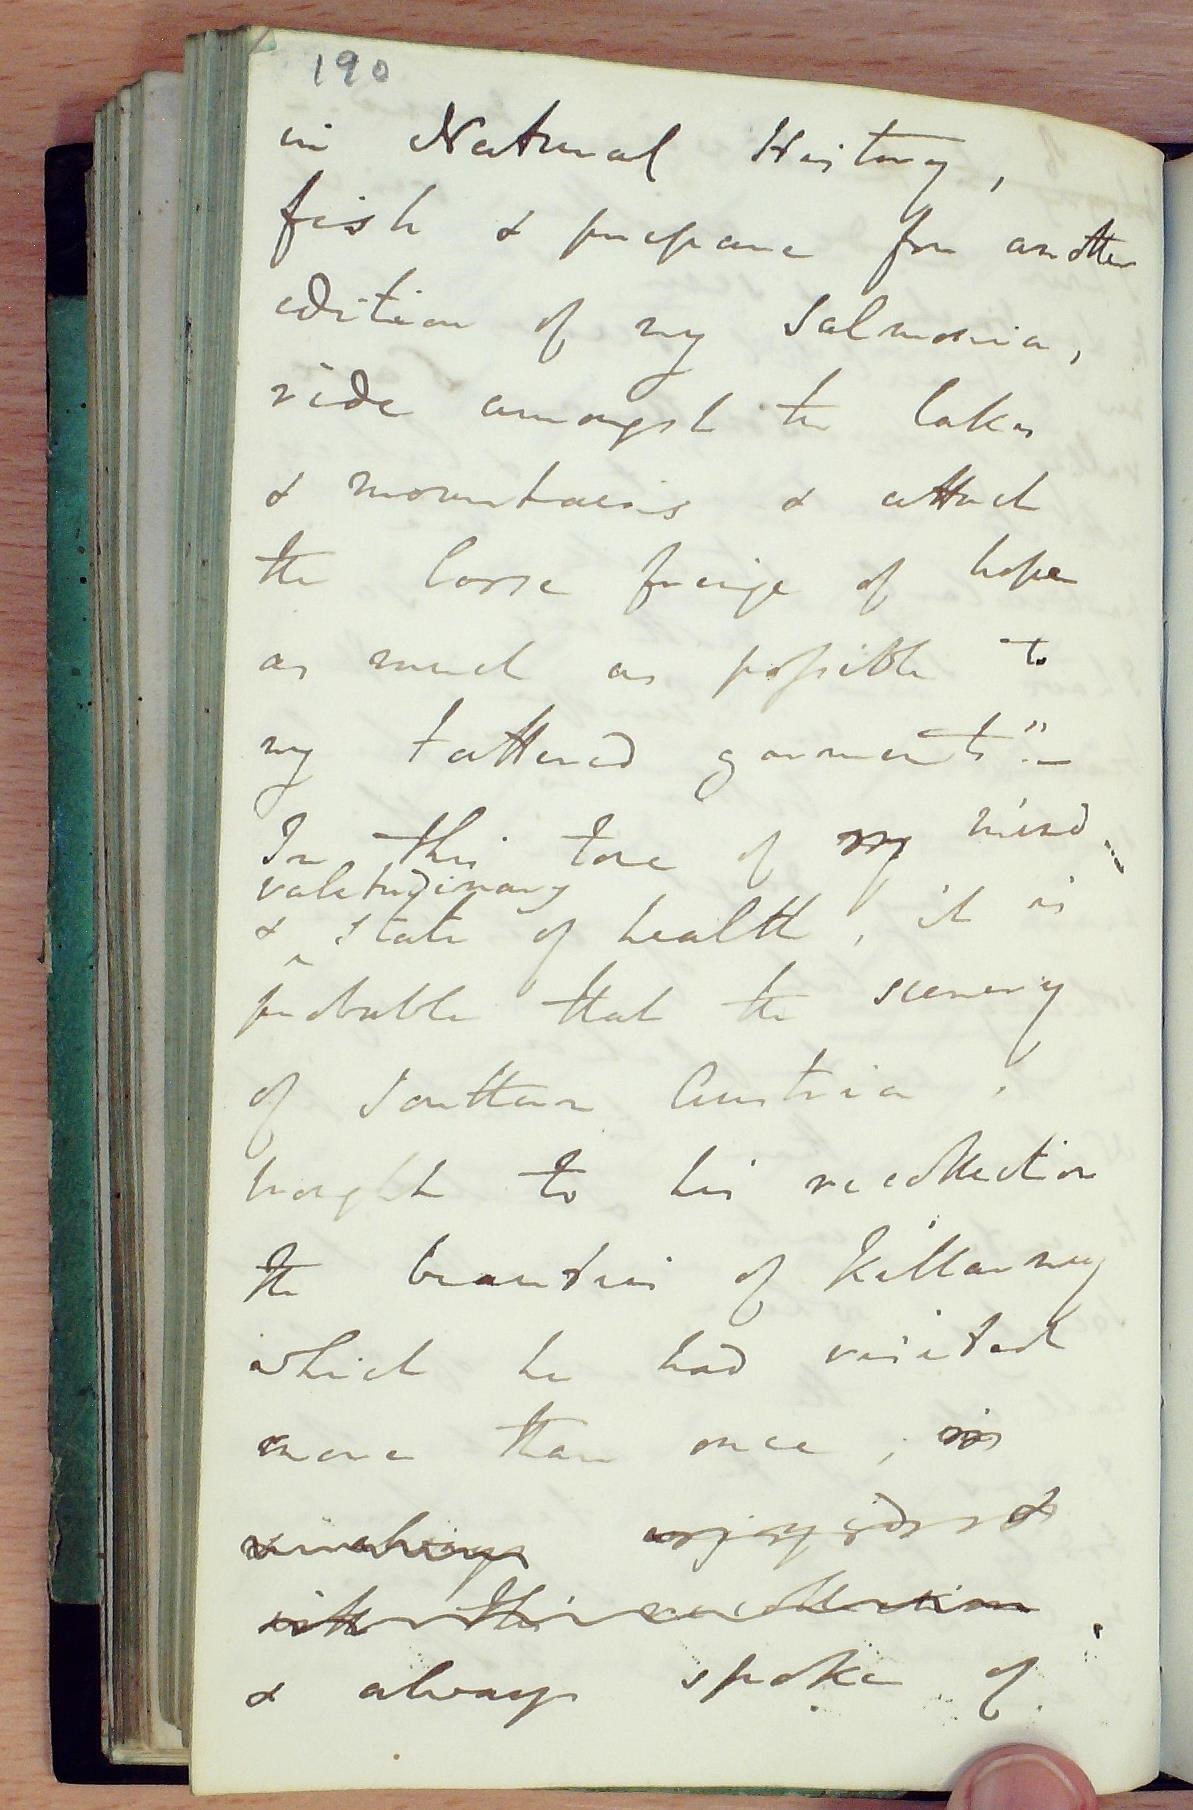 190
in Natural History,
fish & prepare for another
edition of my Salmonia,
ride amongst the lakes
& mountains & attach
the loose fringe of hope
as much as possible to
my tattered garments".—
In this tone of my mind
valetudinary
& state of health, it is
probable that the scenery
of Southern Austria,
brought to his recollection
the beauties of Killarney
which he had visited
more than once,
enjoyed &
with this recollection
& always spoke of